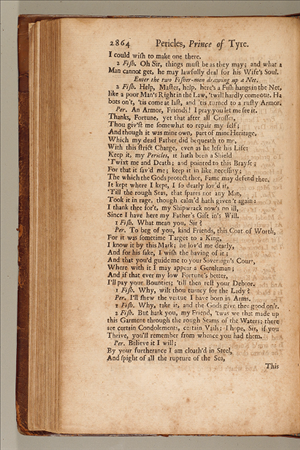 2864 Pericles, Prince of Tyre.
I could wish to make one there.
2 Fish. Oh Sir, things must be as they may; and what a
Man cannot get, he may lawfully deal for his Wife's Soul.
Enter the two Fisher-men drawing up a Net.
2 Fish. Help, Master, help, here's a Fish hangs in the Net,
like a poor Man's Right in the Law, 'twill hardly come out. Ha
bots on't, 'tis come at last, and 'tis turned to a rusty Armor.
Per. An Armor, Friends! I pray you let me see it.
Thanks, Fortune, yet that after all Crosses,
Thou giv'st me somewhat to repair my self;
And though it was mine own, part of mine Heritage,
Which my dead Father did bequeath to me,
With this strict Charge, even as he left his Life:
Keep it, my Pericles, it hath been a Shield
'Twixt me and Death; and pointed to this Brayse;
For that it sav'd me; keep it in like necessity;
The which the Gods protect thee, Fame may defend thee.
It kept where I kept, I so dearly lov'd it,
'Till the rough Seas, that spares not any Man,
Took it in rage, though calm'd hath given't again:
I thank thee for't, my Shipwrack now's no ill,
Since I have here my Father's Gift in's Will.
1 Fish. What mean you, Sir?
Per. To beg of you, kind Friends, this Coat of Worth,
For it was sometime Target to a King,
I know it by this Mark; he lov'd me dearly,
And for his sake, I wish the having of it;
And that you'd guide me to your Sovereign's Court,
Where with it I may appear a Gentleman;
And if that ever my low Fortune's better,
I'll pay your Bounties; 'till then rest your Debtor.
1 Fish. Why, wilt thou turney for the Lady?
Per. I'll shew the virtue I have born in Arms.
1 Fish. Why, take it, and the Gods give thee good on't.
2 Fish. But hark you, my Friend, 'twas we that made up
this Garment through the rough Seams of the Waters; there
are certain Condolements, certain Vails; I hope, Sir, if you
Thrive, you'll remember from whence you had them.
Per. Believe it I will;
By your furtherance I am cloath'd in Steel,
And spight of all the rupture of the Sea,
This